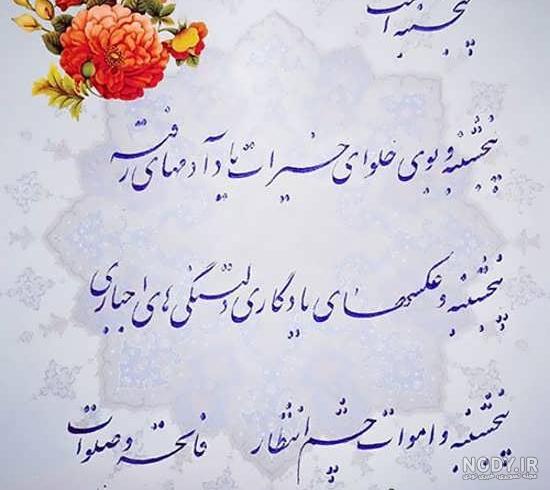 پنجشنبه است
پنجشنبه و بوی حلوای خیرات یاد آدمهای رفته
پنجشنبه و عکسهای یادگاری دلتنگی های اجباری
پنجشنبه و اموات چشم انتظار فاتحه و صلوات
NODY.IR
مجله تصویری خبری نودی